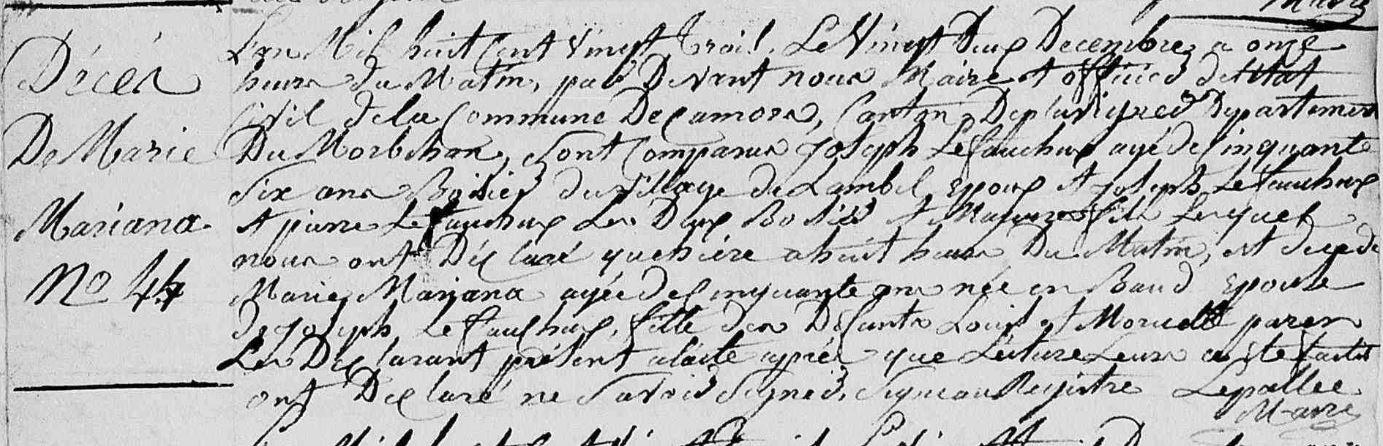 Maire
Décès
De Marie
Mariana
No 44
L'an Mil huit Cent Vingt Trois, Le Vingt Deux Decembre, a onze
heures du Matin, par Devant nous Maire et officier detitat
Civil de la Commune De Camors, Canton De pluvigner Departement
Du Morbihan, Sont Comparus Joseph Le fauchux agé de Cinquante
Six ans Boisier du village de Lambel, Epoux et Joseph Le fauchux
et pierre Le fauchux Les Deux et fils Lesquels
nous ont Déclaré que hière a huit heures Du Matin, est décédé
Marie Mariana agée de Cinquante ans née en Baud Epouse
de Joseph Le fauchux, fille des Defunts Louis et parens
Les Déclarant présent a la ste après que Lecture Leurs a été faite
ont Déclaré ne Savoir Signer, Signe au Registre Lepallec
Maire